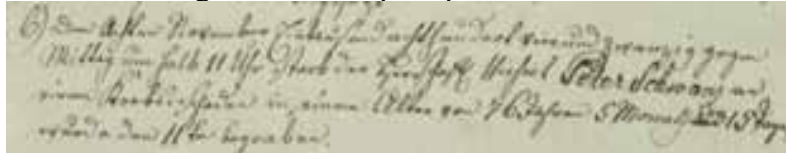 6) den 8ten November Eintausend achthundert vierundzwanzig gegen
Mittag um halb 11 Uhr starb der Peter Schwanz an
einem in einem Alter von 76 Jahren 5 Monath 15 Tage
wurde den 11te begraben.